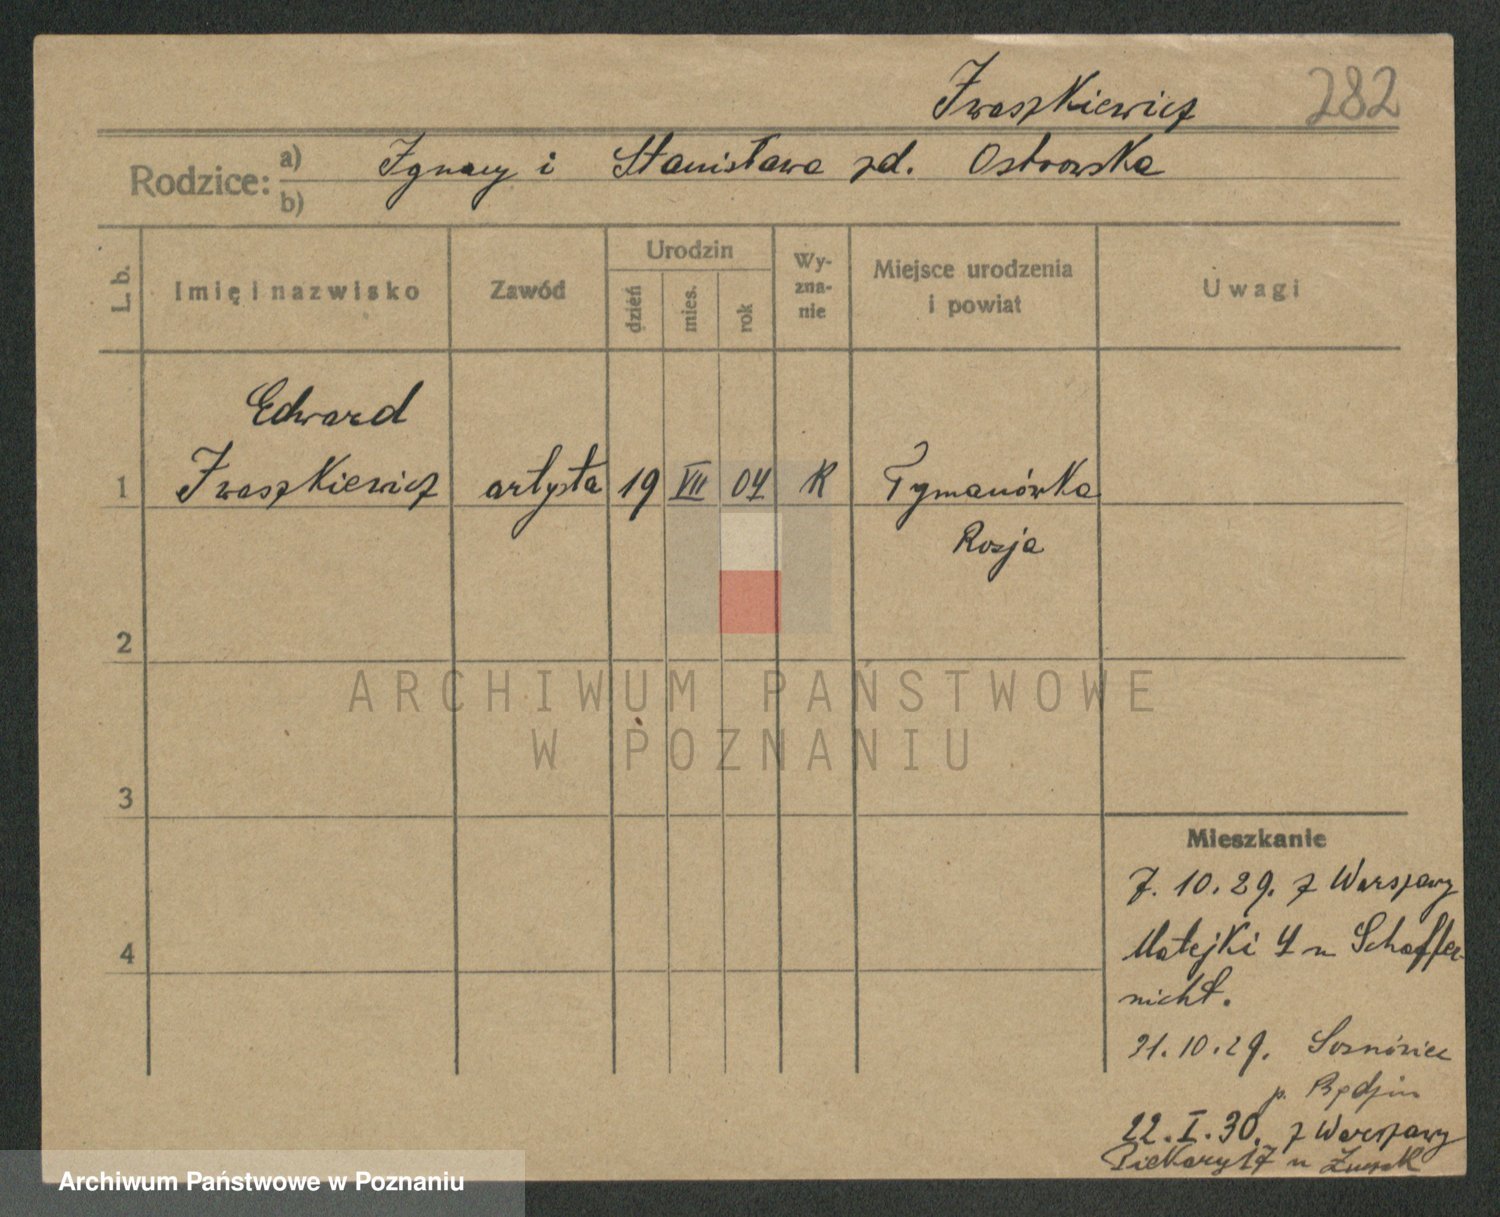 Iwaszkiewicz 282
Rodzice: a) Ignacy i Stanisława zd. Ostrowska
b)
L. b. Imię i nazwisko Zawód Urodzin dzień mies. rok Wy-zna-nie Miejsce urodzenia i powiat Uwagi
Edward
1 Iwaszkiewicz artysta 19 VII 04 K Tymanówka
Rosja
2
ARCHIWUM PAŃSTWOWE
W POZNANIU
3
Mieszkanie
7. 10. 29. z Warszawy
4 Matejki 4 u Schaffer-
nicht.
31. 10. 29. Sosnówiec
p. Będzin
22. I. 30. z Warszawy
Piekary 17 u
Archiwum Państwowe w Poznaniu